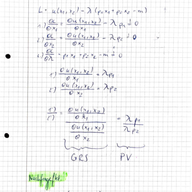 L = u(x₁,x₂) - λ(p₁x₁ + p₂x₂ - m)
1.) ∂L/∂x₁ = ∂u(x₁,x₂)/∂x₁ - λp₁ = 0
2.) ∂L/∂x₂ = ∂u(x₁,x₂)/∂x₂ - λp₂ = 0
3.) ∂L/∂λ = -p₁x₁ + p₂x₂ - m = 0
1') ∂u(x₁,x₂)/∂x₁ = λp₁
2') ∂u(x₁,x₂)/∂x₂ = λp₂
∂u(x₁,x₂)/∂x₁
∂u(x₁,x₂)/∂x₂ = λp₁/λp₂
GRS PV